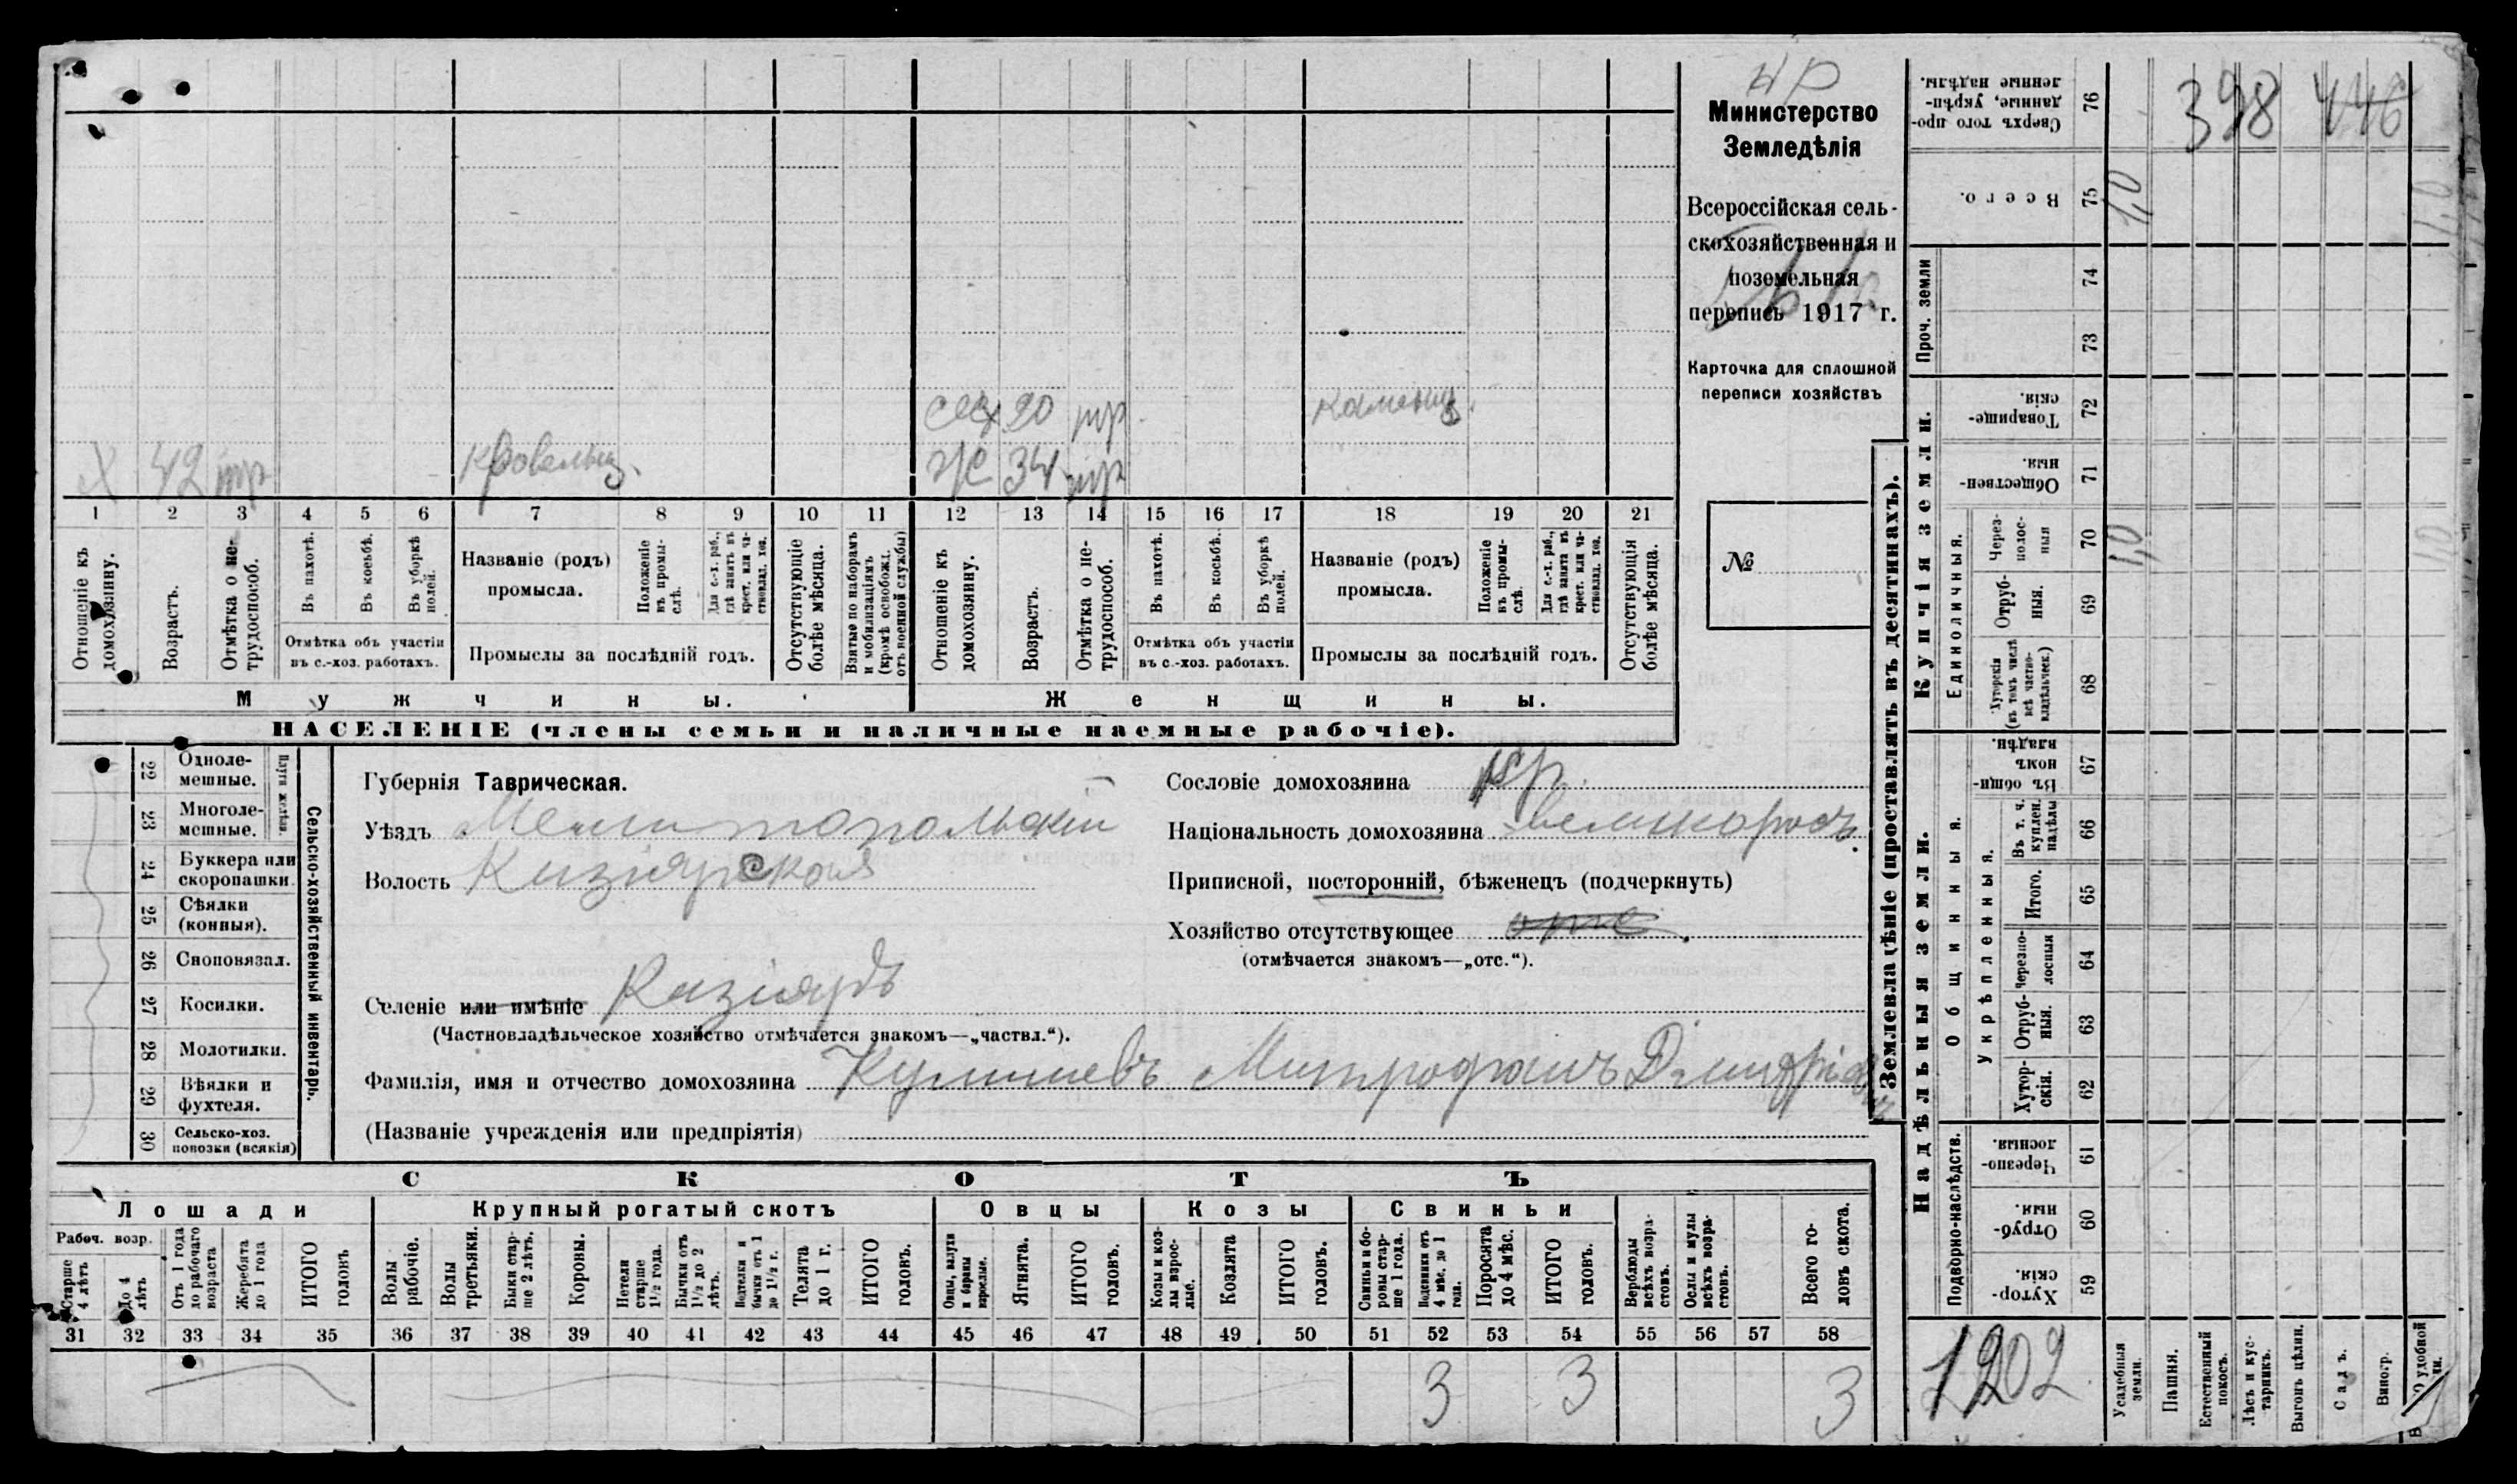 кр
Министерство
Земледѣлія
Всероссійская сель-
скохозяйственная и
поземельная
перепись 1917 г.
Карточка для сплошной
переписи хозяйствъ
№
сес. 20 тр каменщ.
х 42 тр кровельщ. ж 34 тр
1 2 3 4 5 6 7 8 9 10 11 12 13 14 15 16 17 18 19 20 21
Отношеніе къ домохозяину.
Возрастъ.
Отмѣтка о не-трудоспособ.
Въ пахотѣ.
Въ косьбѣ.
Въ уборкѣ полей.
Отмѣтка объ участіи
въ с.-хоз. работахъ.
Названіе (родъ)
промысла.
Положеніе въ промы-слѣ.
Для с.-х. раб., гдѣ занятъ въ крест. или ча-стновлад. хоз.
Промыслы за послѣдній годъ.
Отсутствующіе болѣе мѣсяца.
Взятые по наборамъ и мобилизаціямъ (кромѣ освобожд. отъ военной службы)
Отношеніе къ домохозяину.
Возрастъ.
Отмѣтка о не-трудоспособ.
Въ пахотѣ.
Въ косьбѣ.
Въ уборкѣ полей.
Отмѣтка объ участіи
въ с.-хоз. работахъ.
Названіе (родъ)
промысла.
Положеніе въ промы-слѣ.
Для с.-х. раб., гдѣ занятъ въ крест. или ча-стновлад. хоз.
Промыслы за послѣдній годъ.
Отсутствующія болѣе мѣсяца.
Мужчины. Женщины.
НАСЕЛЕНІЕ (члены семьи и наличные наемные рабочіе).
Сельско-хозяйственный инвентарь.
Плуги желѣзн.
22 Одноле-мешные.
23 Многоле-мешные.
24 Буккера или скоропашки
25 Сѣялки (конныя).
26 Сноповязал.
27 Косилки.
28 Молотилки.
29 Вѣялки и фухтеля.
30 Сельско-хоз. повозки (всякія)
Губернія Таврическая.
Уѣздъ Мелитопольскій
Волость Кизіярская
Селеніе или имѣніе Кизіяръ
(Частновладѣльческое хозяйство отмѣчается знакомъ—„частвл.“).
Сословіе домохозяина кр.
Національность домохозяина великоросъ.
Приписной, посторонній, бѣженецъ (подчеркнуть)
Хозяйство отсутствующее отс.
(отмѣчается знакомъ—„отс.“).
Фамилія, имя и отчество домохозяина Митрофанъ Дмитріев
(Названіе учрежденія или предпріятія)
СКОТЪ
Лошади Крупный рогатый скотъ Овцы Козы Свиньи
Рабоч. возр.
Старше 4 лѣтъ
До 4 лѣтъ
Отъ 1 года до рабочаго возраста
Жеребята до 1 года
ИТОГО головъ
Волы рабочіе.
Волы третьяки.
Быки стар-ше 2 лѣтъ.
Коровы.
Нетели старше 1½ года.
Бычки отъ 1½ до 2 лѣтъ.
Нетелки и бычки отъ 1 до 1½ г.
Телята до 1 г.
ИТОГО головъ.
Овцы, валухи и бараны взрослые.
Ягнята.
ИТОГО головъ.
Козы и коз-лы взрос-лые.
Козлята
ИТОГО головъ.
Свиньи и бо-ровы стар-ше 1 года.
Подсвинки отъ 4 мѣс. до 1 года.
Поросята до 4 мѣс.
ИТОГО головъ.
Верблюды всѣхъ возра-стовъ.
Ослы и мулы всѣхъ возра-стовъ.
Всего го-ловъ скота.
31 32 33 34 35 36 37 38 39 40 41 42 43 44 45 46 47 48 49 50 51 52 53 54 55 56 57 58
3 3 3
Землевладѣніе (проставлять въ десятинахъ).
398 446
Сверхъ того про-данные, укрѣп-ленные надѣлы. 76
Всего. 75 1,0 1,0
Купчія земли.
Проч. земли
74
73
Товарище-скія. 72
Обществен-ныя. 71
Единоличныя.
Через-полос-ныя 70 1,0 1,0
Отруб-ныя. 69
Хуторскія (въ томъ числѣ всѣ частно-владѣльческ.) 68
Надѣльныя земли.
Общинныя.
Въ общин-номъ владѣн. 67
Въ т. ч. куплен. надѣлы 66
Укрѣпленныя.
Итого. 65
Черезпо-лосныя 64
Отруб-ныя. 63
Хутор-скія. 62
Подворно-наслѣдств.
Черезпо-лосныя. 61
Отруб-ныя. 60
Хутор-скія. 59
1202
Усадебныя земли.
Пашня.
Естественный покосъ.
Лѣсъ и кус-тарникъ.
Выгонъ цѣлин.
Садъ.
Виногр.